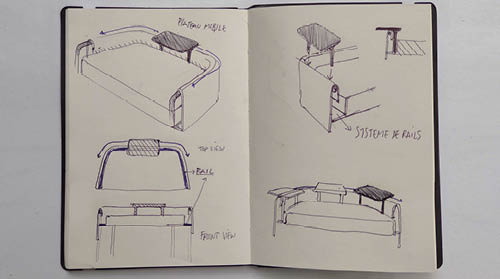 PLATEAU MOBILE
TOP VIEW
RAIL
FRONT VIEW
SYSTEME DE RAILS